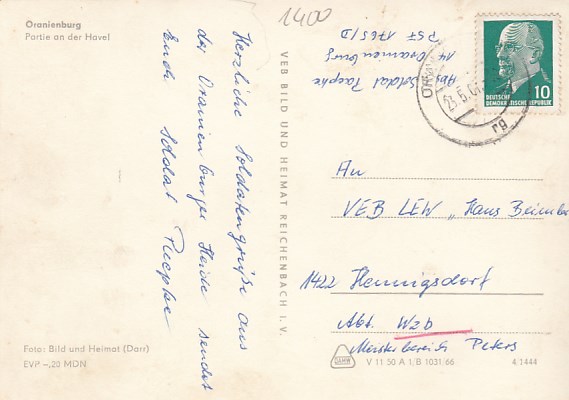 Oranienburg
Partie an der Havel
1400
Herzliche Soldatengrüße aus
der Oranienburger Heide sendet
Euch Soldat Paepke
Foto: Bild und Heimat (Darr)
EVP –,20 MDN
VEB BILD UND HEIMAT REICHENBACH I. V.
Abs. Soldat Paepke
14 Oranienburg
PSF 1765/D
DEUTSCHE
DEMOKRATISCHE REPUBLIK
10
An
VEB LEW „Hans Beimler
1422 Hennigsdorf
Abt. Wzb
Meisterbereich Peters
V 11 50 A 1/B 1031/66
4.1444